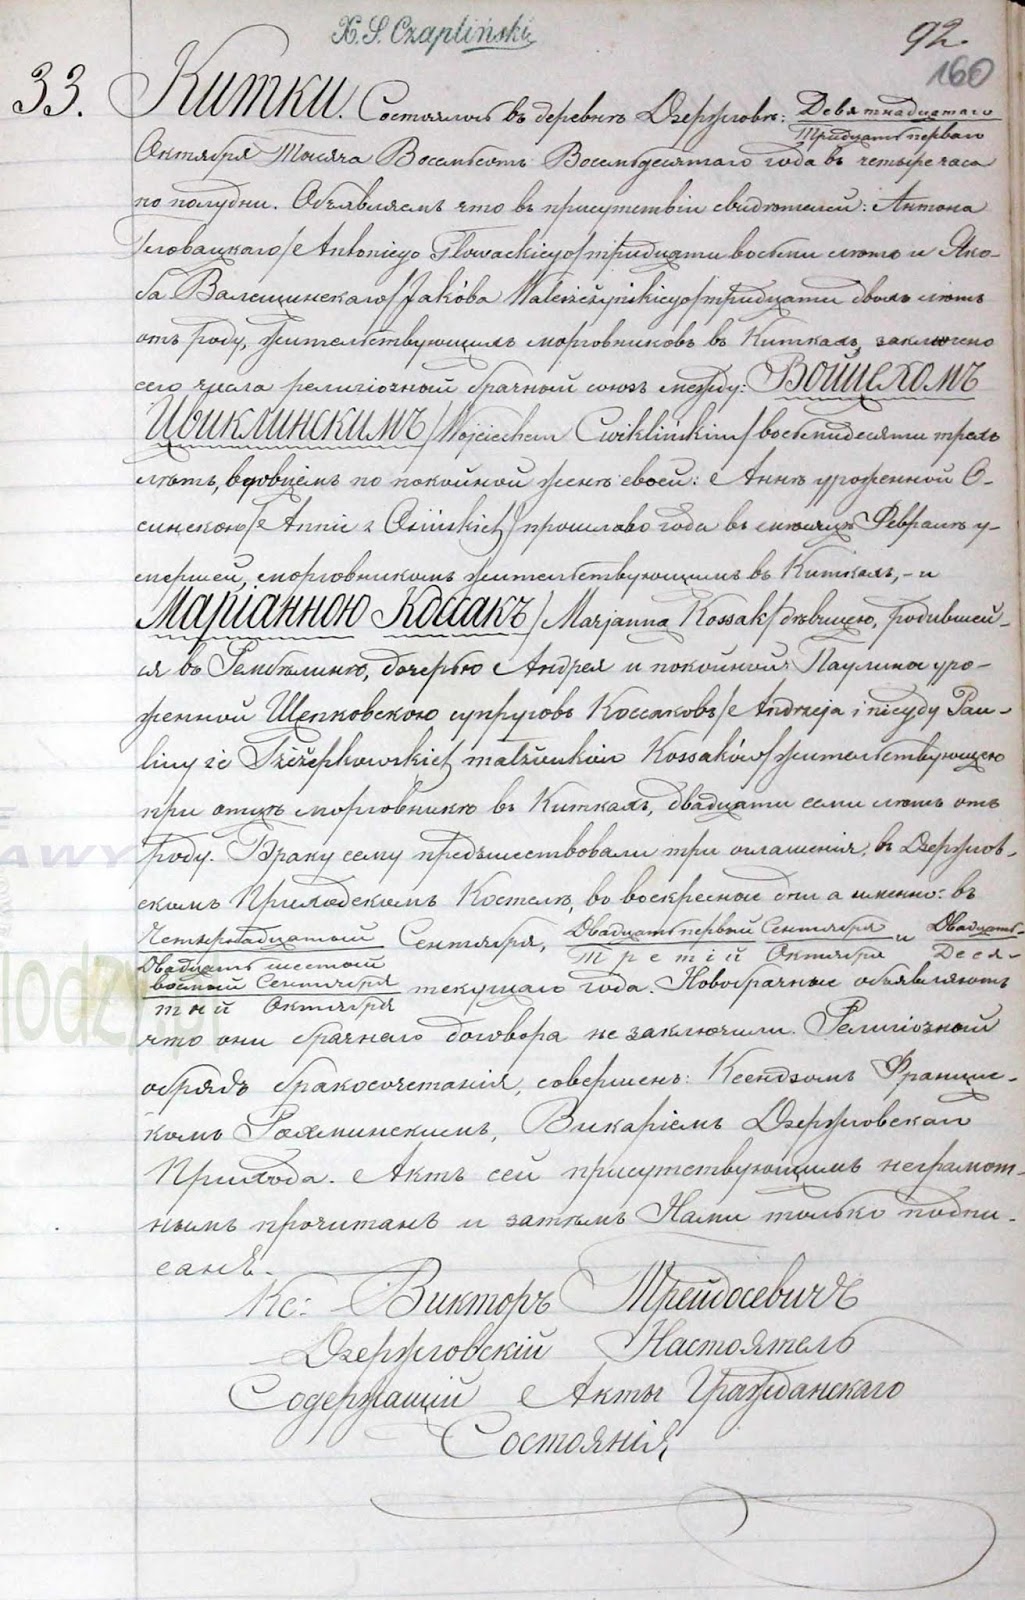 X. S. Czapliński
92.
160
33. Китки. Состоялось въ деревнѣ Дзержговѣ: Девятнадцатаго
Тридцать перваго
Октября Тысяча Восемьсотъ Восемьдесятаго года въ четыре часа
по полудни. Объявляемъ что въ присутствіи свидѣтелей: Антона
Гловацкаго /Antoniego Głowackiego/ тридцати восьми лѣтъ и Яко-
ба Валещинскаго /Jakóba Waleszczyńskiego/ тридцати двухъ лѣтъ
отъ роду, жительствующихъ морговниковъ въ Киткахъ, заключено
сего числа религіозный брачный союзъ между: Войцехомъ
Цвиклинскимъ /Wojciechem Cwiklińskim/ восьмидесяти трехъ
лѣтъ, вдовцемъ по покойной женѣ своей: Аннѣ урожденной О-
синскою /Annie z Osińskich/ прошлаво года въ мѣсяцѣ Февралѣ у-
мершей, морговникомъ жительствующимъ въ Киткахъ, - и
Маріанною Коссакъ /Marjanna Kossak/ дѣвицею, родившей-
ся въ Рембѣлинѣ, дочерью Андрея и покойной Паулины уро-
женной Щепковскою супруговъ Коссаковъ /Andrzeja i niegdy Pau-
liny ze Szczepkowskich małżonków Kossaków/ жительствующею
при отцѣ морговникѣ въ Киткахъ, двадцати семи лѣтъ отъ
роду. Браку сему предшествовали три оглашенія, въ Дзержгов-
скомъ Приходскомъ Костелѣ, во воскресные дни а именно: въ
Четырнадцатый Сентября, Двадцать первый Сентября и Двадцать-
Двадцать шестой Третій Октября Деся-
восьмый Сентября текущаго года. Новобрачные объявляютъ
тый Октября
что они брачнаго договора не заключили. Религіозный
обрядъ бракосочетанія, совершенъ: Ксендзомъ Францис-
комъ Викаріемъ Дзержговскаго
Прихода. Актъ сей присутствующимъ неграмот-
нымъ прочитанъ и затѣмъ Нами только подпи-
санъ.
Кс: Викторъ
Дзержговскій Настоятель
Содержащій Акты Гражданскаго
Состоянія